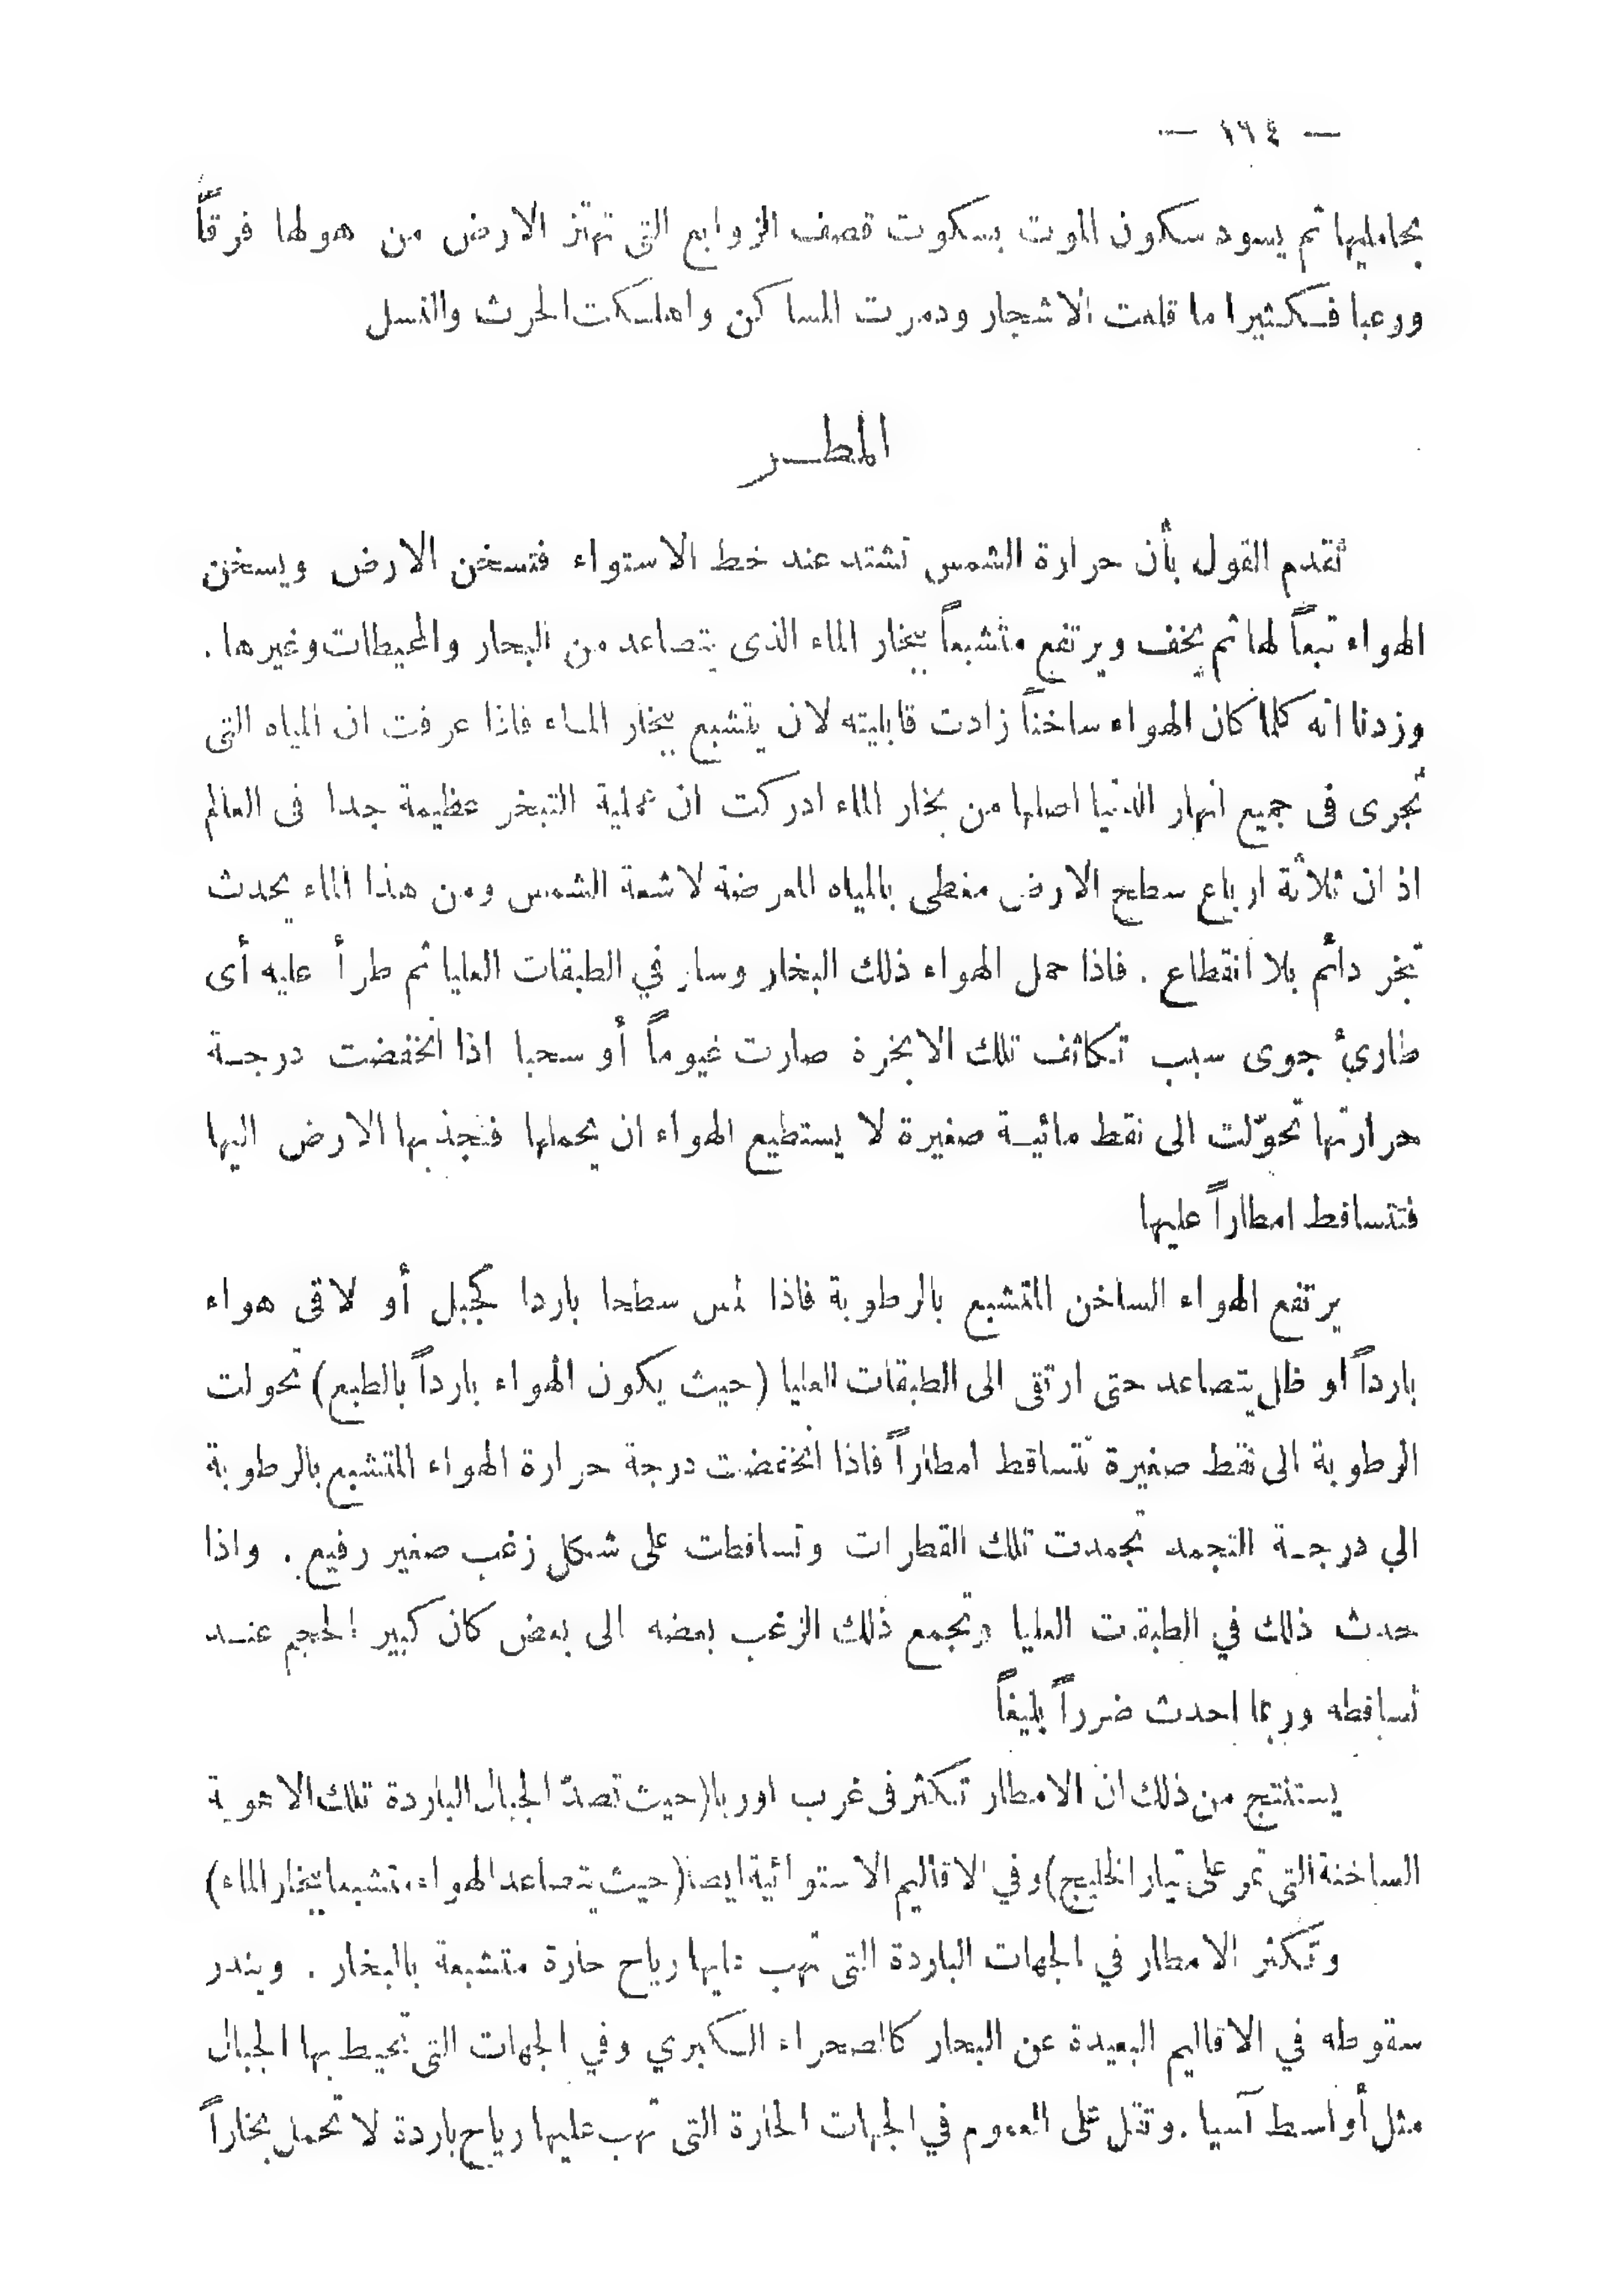 — ١٦٤ —
بحامليها ثم يسود سكون الموت بسكوت قصف الزوابع التى تهتز الارض من هولها فرقاً
ورعبا فكثيرا ما قلعت الاشجار ودمرت المساكن واهلكت الحرث والنسل
المطر
تقدم القول بأن حرارة الشمس تشتد عند خط الاستواء فتسخن الارض ويسخن
الهواء تبعاً لها ثم يخف ويرتفع متشبعاً ببخار الماء الذى يتصاعد من البحار والمحيطات وغيرها .
وزدنا انه كلما كان الهواء ساخناً زادت قابليته لان يتشبع ببخار الماء فاذا عرفت ان المياه التى
تجرى فى جميع انهار الدنيا اصلها من بخار الماء ادركت ان عملية التبخر عظيمة جدا فى العالم
اذ ان ثلاثة ارباع سطح الارض مغطى بالمياه المعرضة لاشعة الشمس ومن هذا الماء يحدث
تبخر دائم بلا انقطاع . فاذا حمل الهواء ذلك البخار وسار في الطبقات العليا ثم طرأ عليه أى
طارئ جوى سبب تكاثف تلك الابخرة صارت غيوماً أو سحبا اذا انخفضت درجة
حرارتها تحوّلت الى نقط مائية صغيرة لا يستطيع الهواء ان يحملها فتجذبها الارض اليها
فتتساقط امطاراً عليها
يرتفع الهواء الساخن المتشبع بالرطوبة فاذا لمس سطحا باردا كجبل أو لاقى هواء
بارداً او ظل يتصاعد حتى ارتقى الى الطبقات العليا (حيث يكون الهواء بارداً بالطبع) تحولت
الرطوبة الى نقط صغيرة تتساقط امطاراً فاذا انخفضت درجة حرارة الهواء المتشبع بالرطوبة
الي درجة التجمد تجمدت تلك القطرات وتساقطت على شكل زغب صغير رفيع . واذا
حدث ذلك في الطبقت العليا وتجمع ذلك الزغب بعضه الى بعض كان كبير الحجم عند
تساقطه وربما احدث ضرراً بليغاً
يستنتج من ذلك ان الامطار تكثر فى غرب اوربا (حيث تصدّ الجبال الباردة تلك الاهوية
الساخنة التى تمر على تيار الخليج) وفي الاقاليم الاستوائية ايضا (حيث يتصاعد الهواء متشبعا ببخار الماء)
وتكثر الامطار في الجهات الباردة التى تهب عليها رياح حارة متشبعة بالبخار . ويندر
سقوطه في الاقاليم البعيدة عن البحار كالصحراء الكبري وفي الجهات التى تحيط بها الجبال
مثل أواسط آسيا . وتقل على العموم في الجهات الحارة التى تهب عليها رياح باردة لا تحمل بخاراً